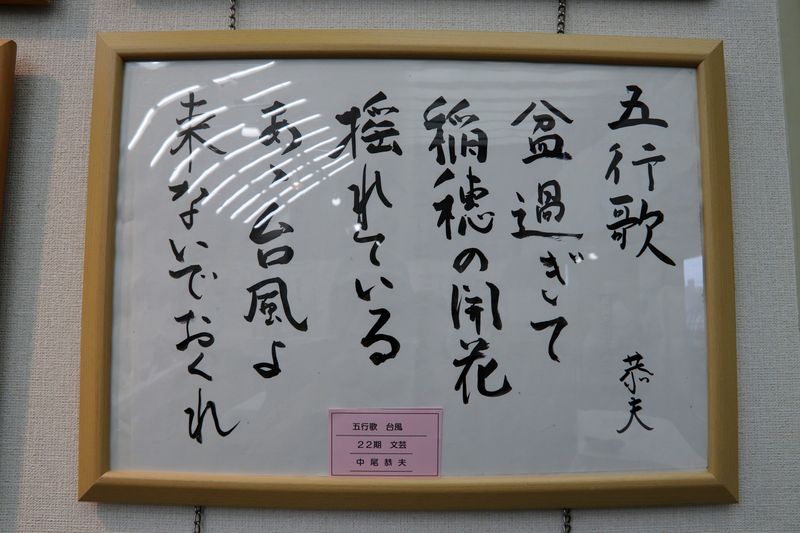 五行歌
恭夫
盆過ぎて
稲穂の開花
揺れている
あゝ台風よ
来ないでおくれ
五行歌 台風
22期 文芸
中尾恭夫